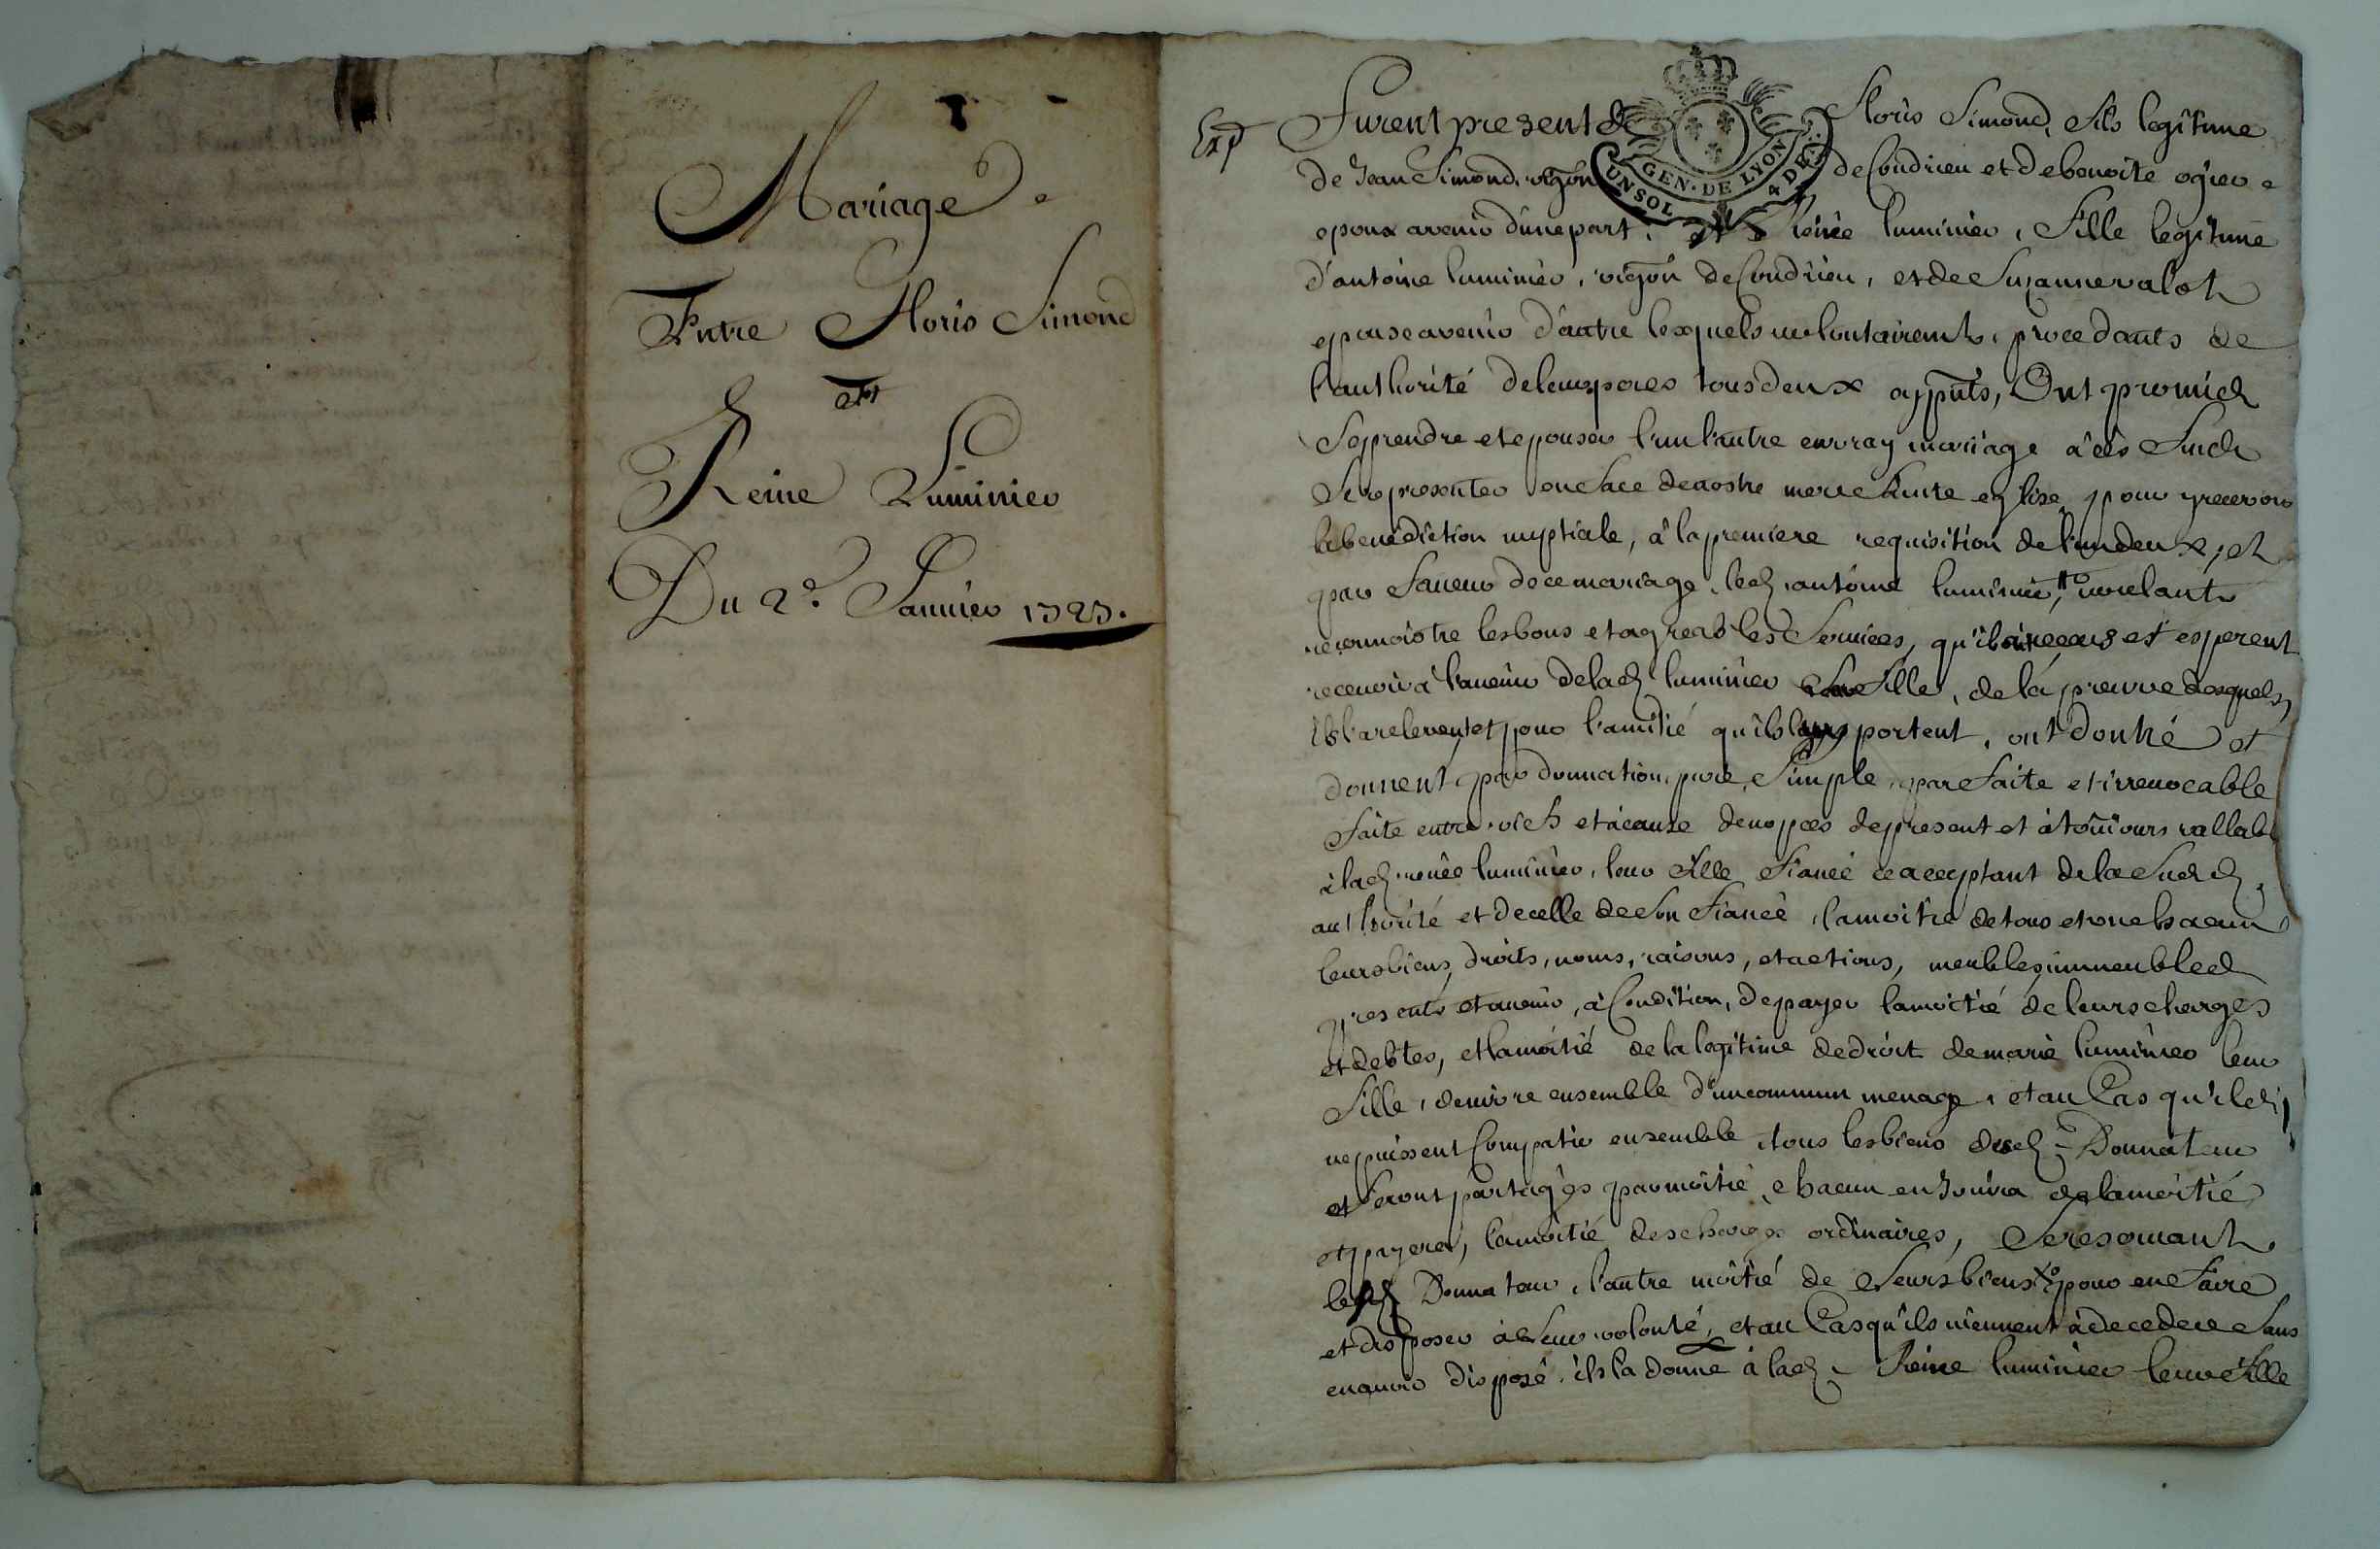 Mariage
Entre Floris Simond
Et
Reine Luminier
Du 2e. Janvier 1727.
Exp
Furent present Floris Simond, fils legitime
de Jean Simond, vigon de Condrieu et de benoite ogier
GEN. DE LYON
UN SOL 4 DE.
epoux avenir d'une part, et Reine luminier, fille legitime
d'antoine luminier, vigon de Condrieu, et de Suzanne valot
epouse avenir d'autre lesquels volontairemt, procedants de
l'authorité de leurs peres tous deux appnts, Ont promis
se prendre et epouser l'un l'autre en vray mariage à ces fins
se representer en face de nostre mere sainte eglise pour y recevoir
la benediction nuptiale, à la premiere requisition de l'un deux, et
par faveur de ce mariage, led. antoine luminier, voulant
reconnoistre les bons et agreables services, qu'ils ont receus et esperent
recevoir à l'avenir de lad. luminier fille, de la preuve desquels
ils la relevent et pour l'amitié qu'ils luy portent, ont donné et
donnent par donnation pure, simple, parfaite et irrevocable
faite entre vifs et à cause de nopces de present et à toujours vallable
à lad. reine luminier, leur fille fiancé ce acceptant de la susd.
authorité et de celle de son fiancé, la moitié de tous et un chacun
leurs biens, droits, noms, raisons, et actions, meubles, immeubles
presents et avenir, à Condition, de payer la moitié de leurs charges
et debtes, et la moitié de la legitime de droit de marie luminier leur
fille, de vivre ensemble d'un commun menage, et au Cas qu'ils
ne puissent Compatir ensemble, tous les biens dud. Donnateur
seront partagés par moitié, chacun en Jouira de la moitié
et payera, la moitié des charges ordinaires, se reservant
led. Donnateur, l'autre moitié de leurs biens pour en faire
et disposer à leur volonté, et au Cas qu'ils viennent à deceder sans
en avoir disposé, ils la donne à lad. Reine luminier leur fille